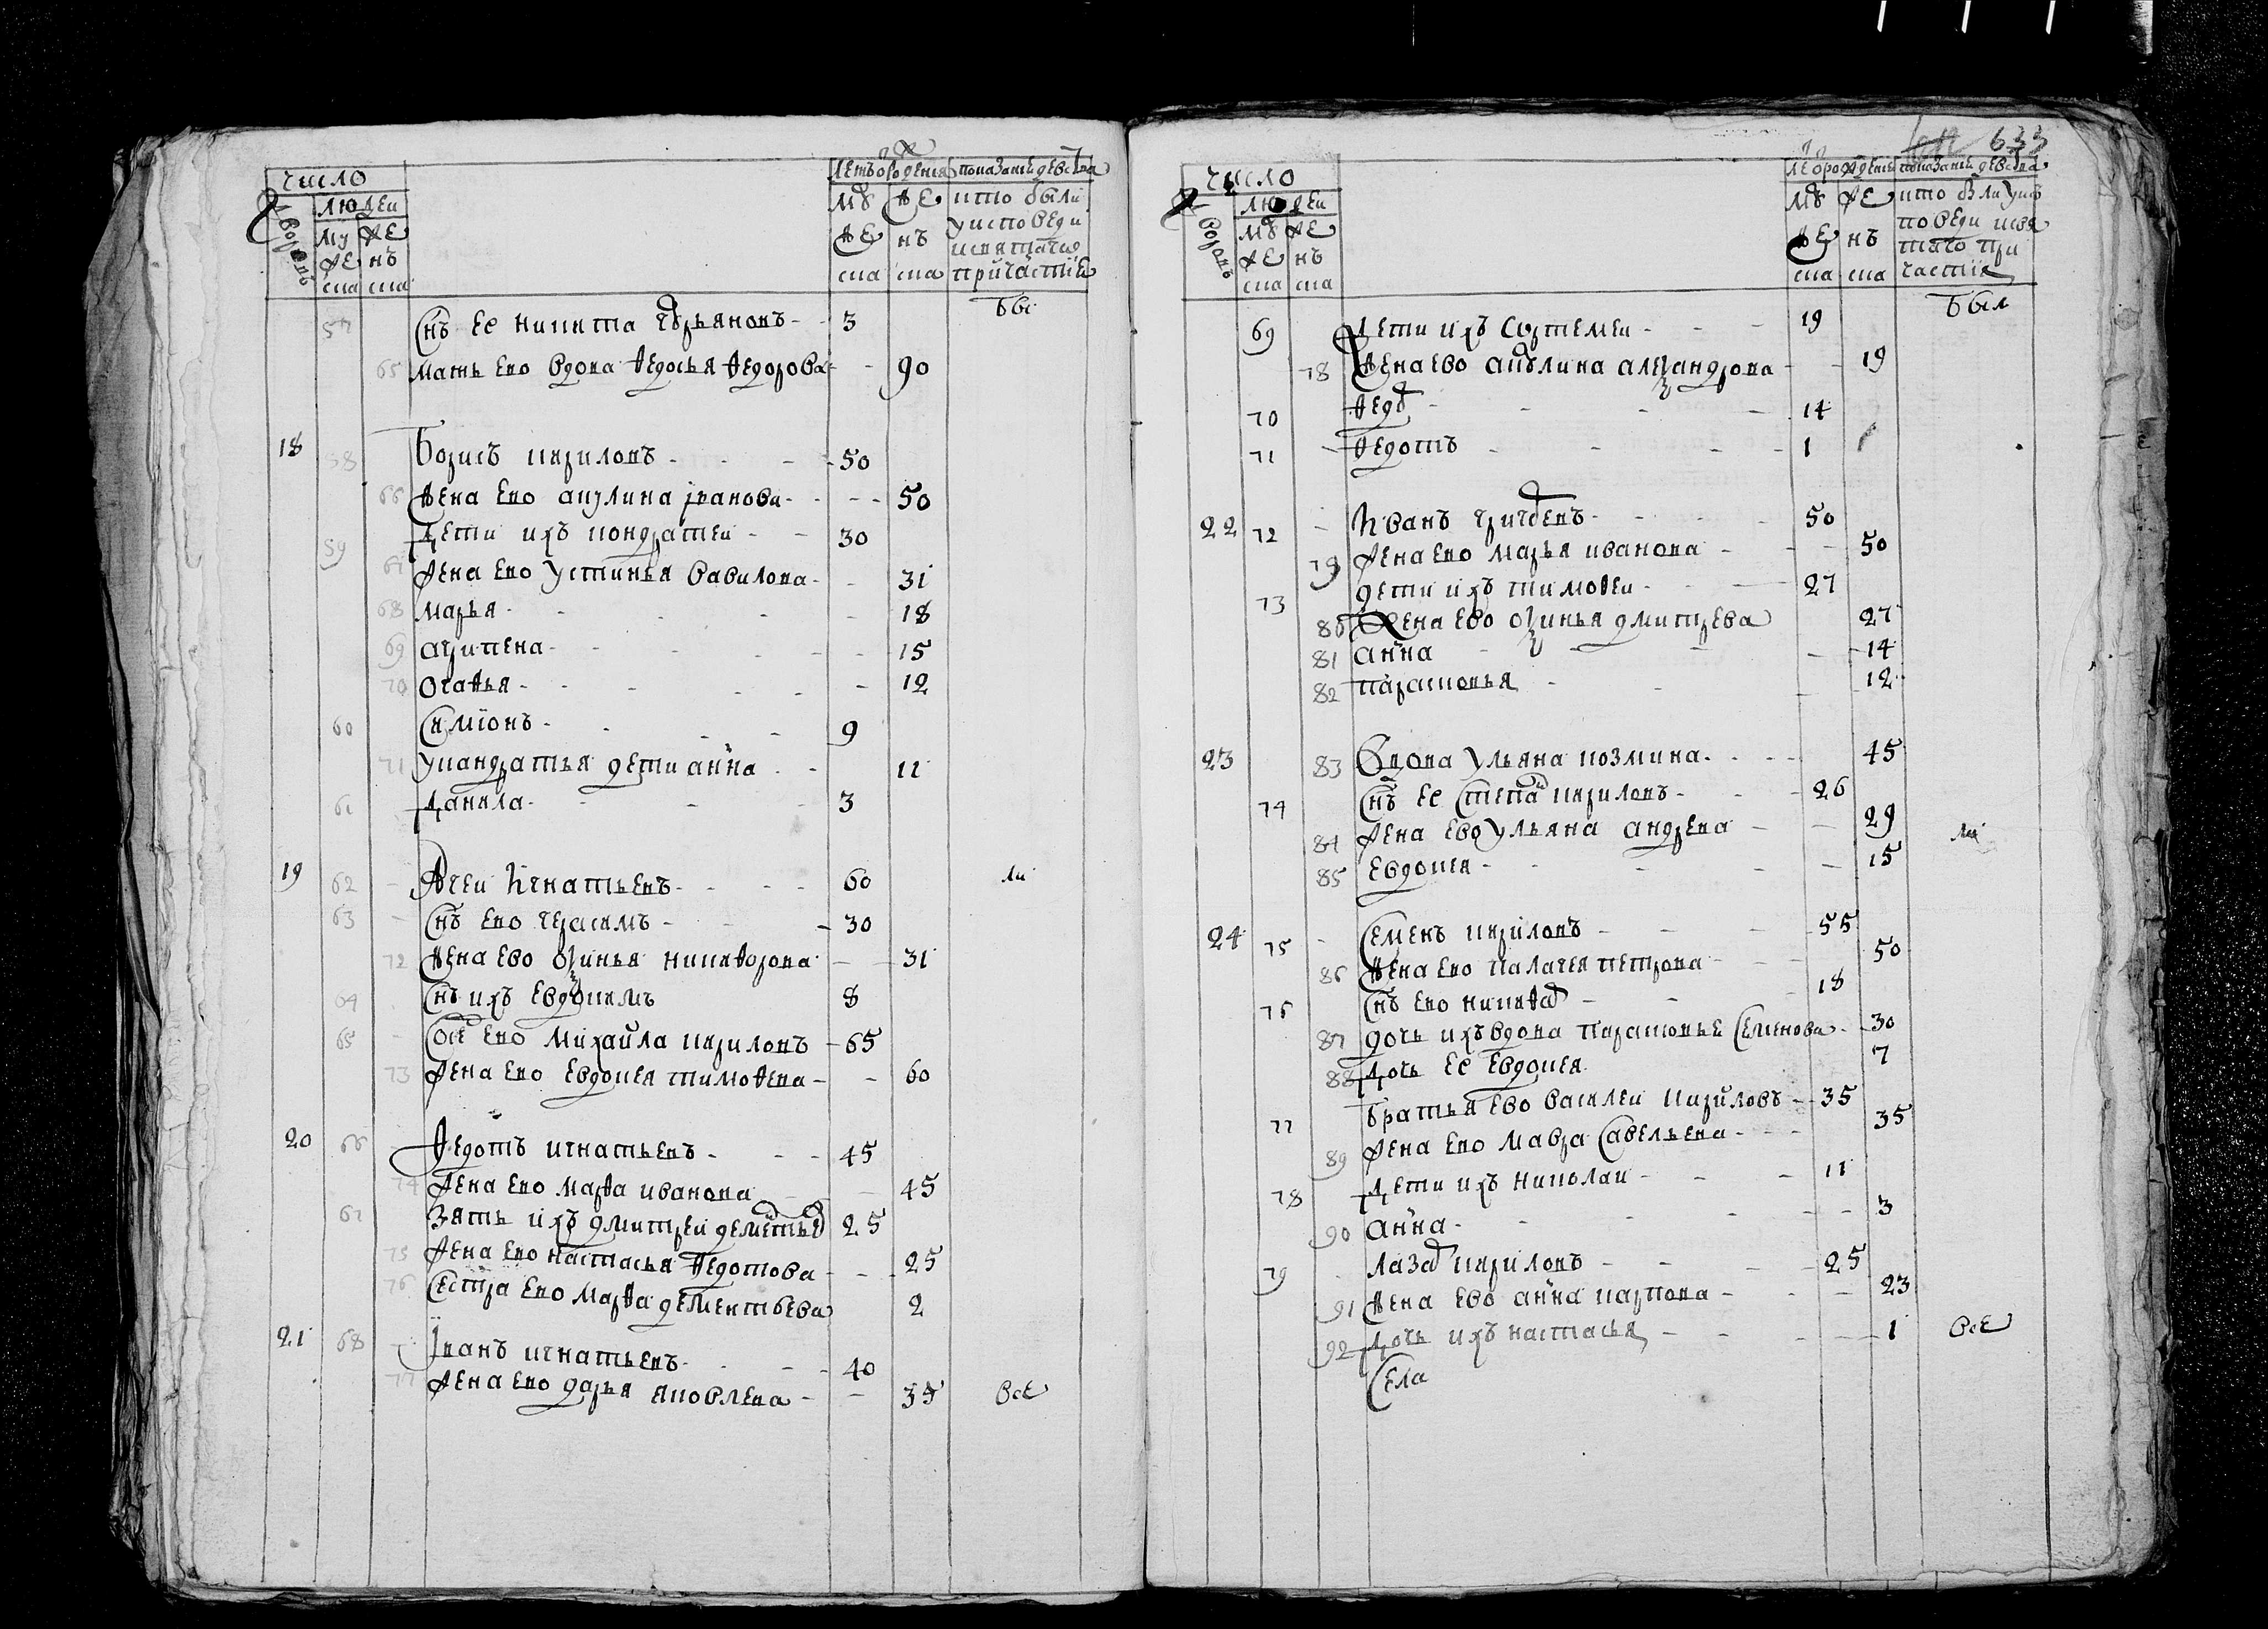 число
дворовъ
людеи
му же ска
же нъ ска
летъ от рождения
му же ска
же нъ ска
показание действа
кто были
у исповеди
и святаго
причастия
57 Снъ ее никита гурьяновъ - 3 бы
65 мать ево вдова Федосья Федорова - 90
18 58 Борисъ кириловъ - 50
66 жена ево акулина iванова - 50
59 Дети ихъ кондратеи - 30
67 жена ево устинья вавилова - 31
68 марья - 18
69 агрипена - 15
70 огафья - 12
60 Симионъ - 9
71 у кандратья дети анна - 11
61 Данила - 3
19 62 Агеи Игнатьевъ - 60 ли
63 Снъ ево герасимъ - 30
72 жена ево оксинья никифорова - 31
64 Снъ ихъ евдокимъ 8
65 Сосе ево михаила кириловъ - 65
73 жена ево евдокея тимофева - 60
20 66 Федотъ игнатьевъ - 45
74 жена ево марфа иванова - 45
67 Зять ихъ дмитреи деметьев 25
75 жена ево настасья Федотова - 25
76 Сестра ево марфа дементьева 2
21 68 Iванъ игнатьевъ - 40
77 жена ево дарья яковлева - 35 все
633
число
дворовъ
людеи
му же ска
же нъ ска
ле от рождения
му же ска
же нъ ска
показание действа
кто были у ис
поведи и свя
таго при
частия
69 Дети ихъ Сортемеи - 19 был
78 жена ево акулина алезандрова - 19
70 Федо - 14
71 Федотъ - 1
22 72 Иванъ григоревъ - 50
79 жена ево марья иванова - 50
73 дети ихъ тимофеи - 27
80 жена ево оксинья дмитрева 27
81 анна - 14
82 парасковья - 12
23 83 Вдова ульяна козмина - 45
74 Снъ ее степан кириловъ - 26
84 жена ево ульяна андрева - 29
85 евдокея - 15 ли
24 75 Семенъ кириловъ - 55
86 жена ево палагея петрова - 50
76 Снъ ево никифор - 18
87 дочь ихъ вдова парасковье Семенова - 30
88 Дочь ее евдокея 7
77 братья ево василеи кириловъ - 35
89 жена ево мавра Савельева - 35
78 Дети ихъ николаи - 11
90 анна - 3
79 лазар кириловъ - 25
91 жена ево анна карпова - 23
92 Дочь ихъ настасья - 1 все
Села